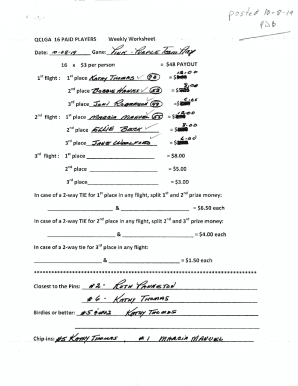 posted 10-8-19
QCLGA 16 PAID PLAYERS Weekly Worksheet
Date: 10-08-19 Game: Pink - Purple Tees Play
16 x $3 per person = $48 PAYOUT
1st flight : 1st place Kathy Thomas = $ 10.00
2nd place Bobbie = $ 8.00
3rd place = $
2nd flight : 1st place Marcia Manuel = $ 10.00
2nd place Ellie = $ 8.00
3rd place Jane = $ 6.00
3rd flight : 1st place = $8.00
2nd place = $5.00
3rd place = $3.00
In case of a 2-way TIE for 1st place in any flight, split 1st and 2nd prize money:
& - $6.50 each
In case of a 2-way TIE for 2nd place in any flight, split 2nd and 3rd prize money:
& = $4.00 each
In case of a 2-way tie for 3rd place in any flight:
& = $1.50 each
Closest to the Pins: #2 - Ruth
#6 - Kathy Thomas
Birdies or better: #5 Kathy Thomas
Chip-ins: #5 Kathy Thomas #1 Marcia Manuel